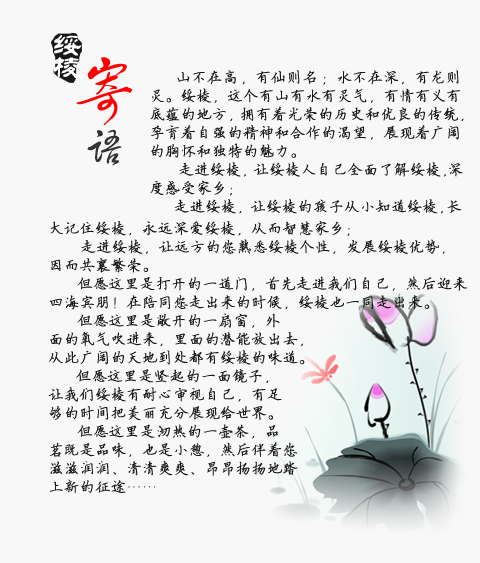 绥棱
寄语
山不在高，有仙则名；水不在深，有龙则
灵。绥棱，这个有山有水有灵气，有情有义有
底蕴的地方，拥有着光荣的历史和优良的传统，
孕育着自强的精神和合作的渴望，展现着广阔
的胸怀和独特的魅力。
走进绥棱，让绥棱人自己全面了解绥棱,深
度感受家乡；
走进绥棱，让绥棱的孩子从小知道绥棱,长
大记住绥棱，永远深爱绥棱，从而智慧家乡；
走进绥棱，让远方的您熟悉绥棱个性，发展绥棱优势，
因而共襄繁荣。
但愿这里是打开的一道门，首先走进我们自己，然后迎来
四海宾朋！在陪同您走出来的时候，绥棱也一同走出来。
但愿这里是敞开的一扇窗，外
面的氧气吹进来，里面的潜能放出去，
从此广阔的天地到处都有绥棱的味道。
但愿这里是竖起的一面镜子，
让我们绥棱有耐心审视自己，有足
够的时间把美丽充分展现给世界。
但愿这里是沏热的一壶茶，品
茗既是品味，也是小憩，然后伴着您
滋滋润润、清清爽爽、昂昂扬扬地踏
上新的征途……